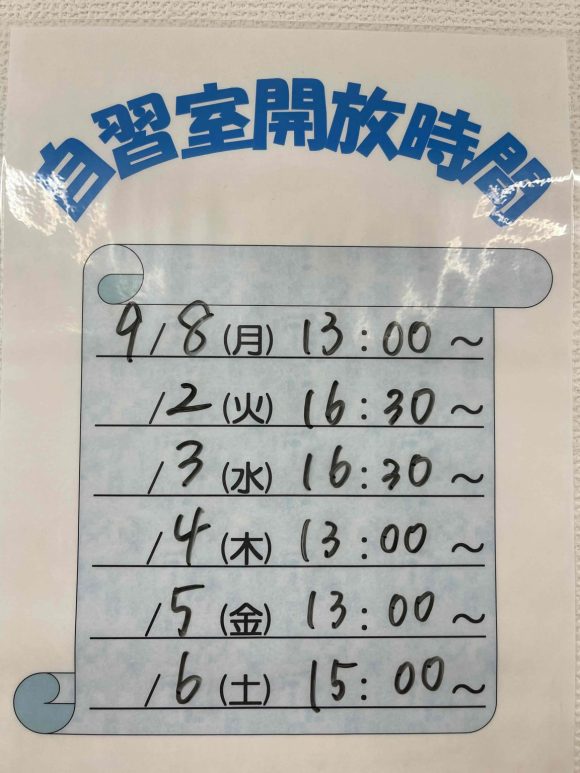 自習室開放時間
9/8(月) 13:00～
/2(火) 16:30～
/3(水) 16:30～
/4(木) 13:00～
/5(金) 13:00～
/6(土) 15:00～